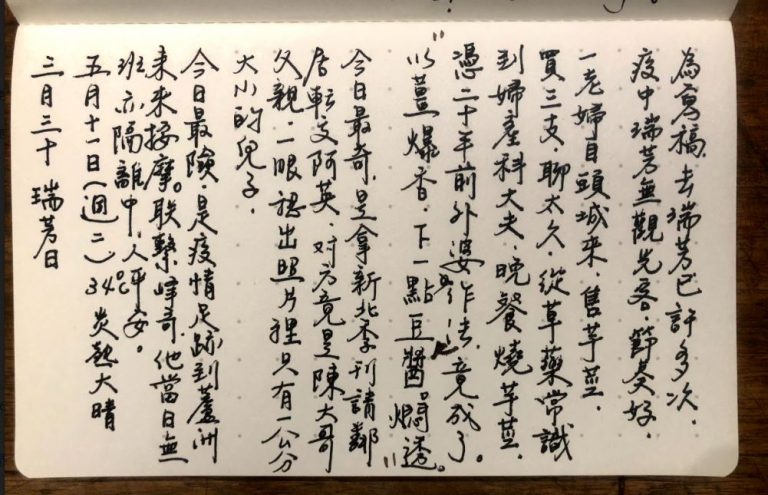 為寫稿,去瑞芳已許多次,
疫中瑞芳無觀光客,節奏好,
一老婦自頭城來,售芋莖,
買三支,聊太久,從草藥常識
到婦產科大夫,晚餐燒芋莖,
憑二十年前外婆作法,竟成了。
"以薑爆香,下一點豆醬燜透。"
今日最奇,是拿新北季刊請鄰
居轉交阿英,对方竟是陳大哥
父親,一眼認出照片裡只有一公分
大小的兒子。
今日最險,是疫情足跡到蘆洲
未來按摩。联繫峰哥,他當日無
班,亦隔離中,人平安。
五月十一日(週二)34℃ 炎熱大晴
三月三十 瑞芳日